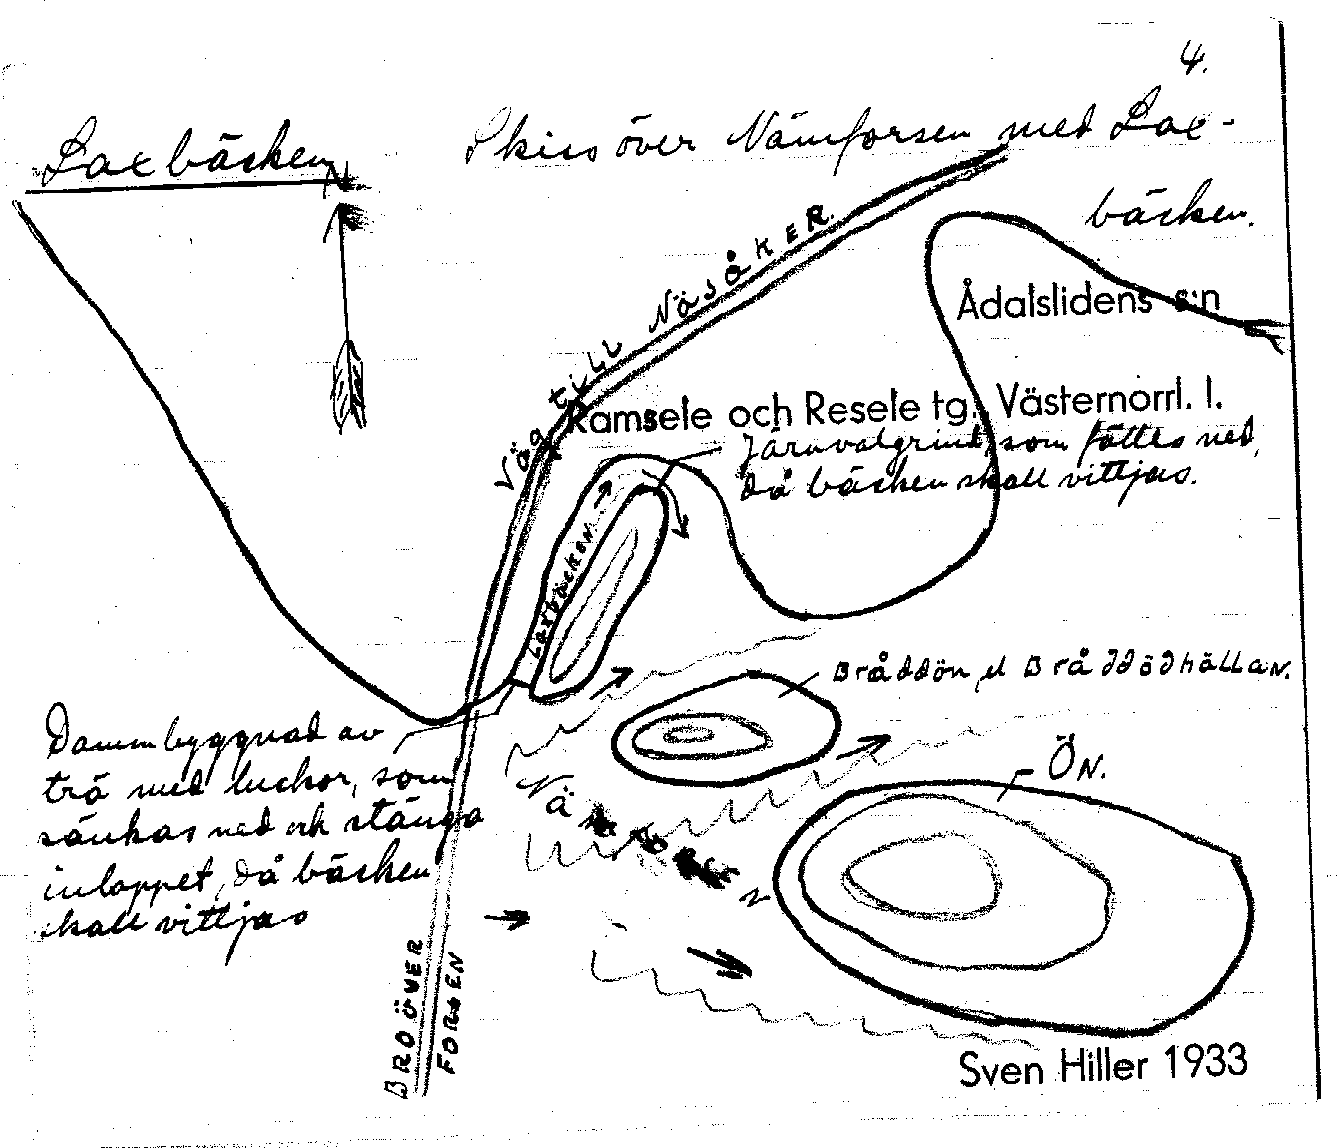 4.
Laxbäcken
Skiss över Nämforsen med Lax-
bäcken.
N
Ådalslidens s:n
Ramsele och Resele tg. Västernorrl. l.
Väg till Näsåker.
Järnvalgrind, som fälles ned,
då bäcken skall vittjas.
Laxbäcken.
Bråddön el Bråddöhällan.
Ön.
Dammbyggnad av
trä med luckor, som
sänkas ned och stänga
inloppet, då bäcken
skall vittjas
Nämforsen
Bro över
forsen
Sven Hiller 1933